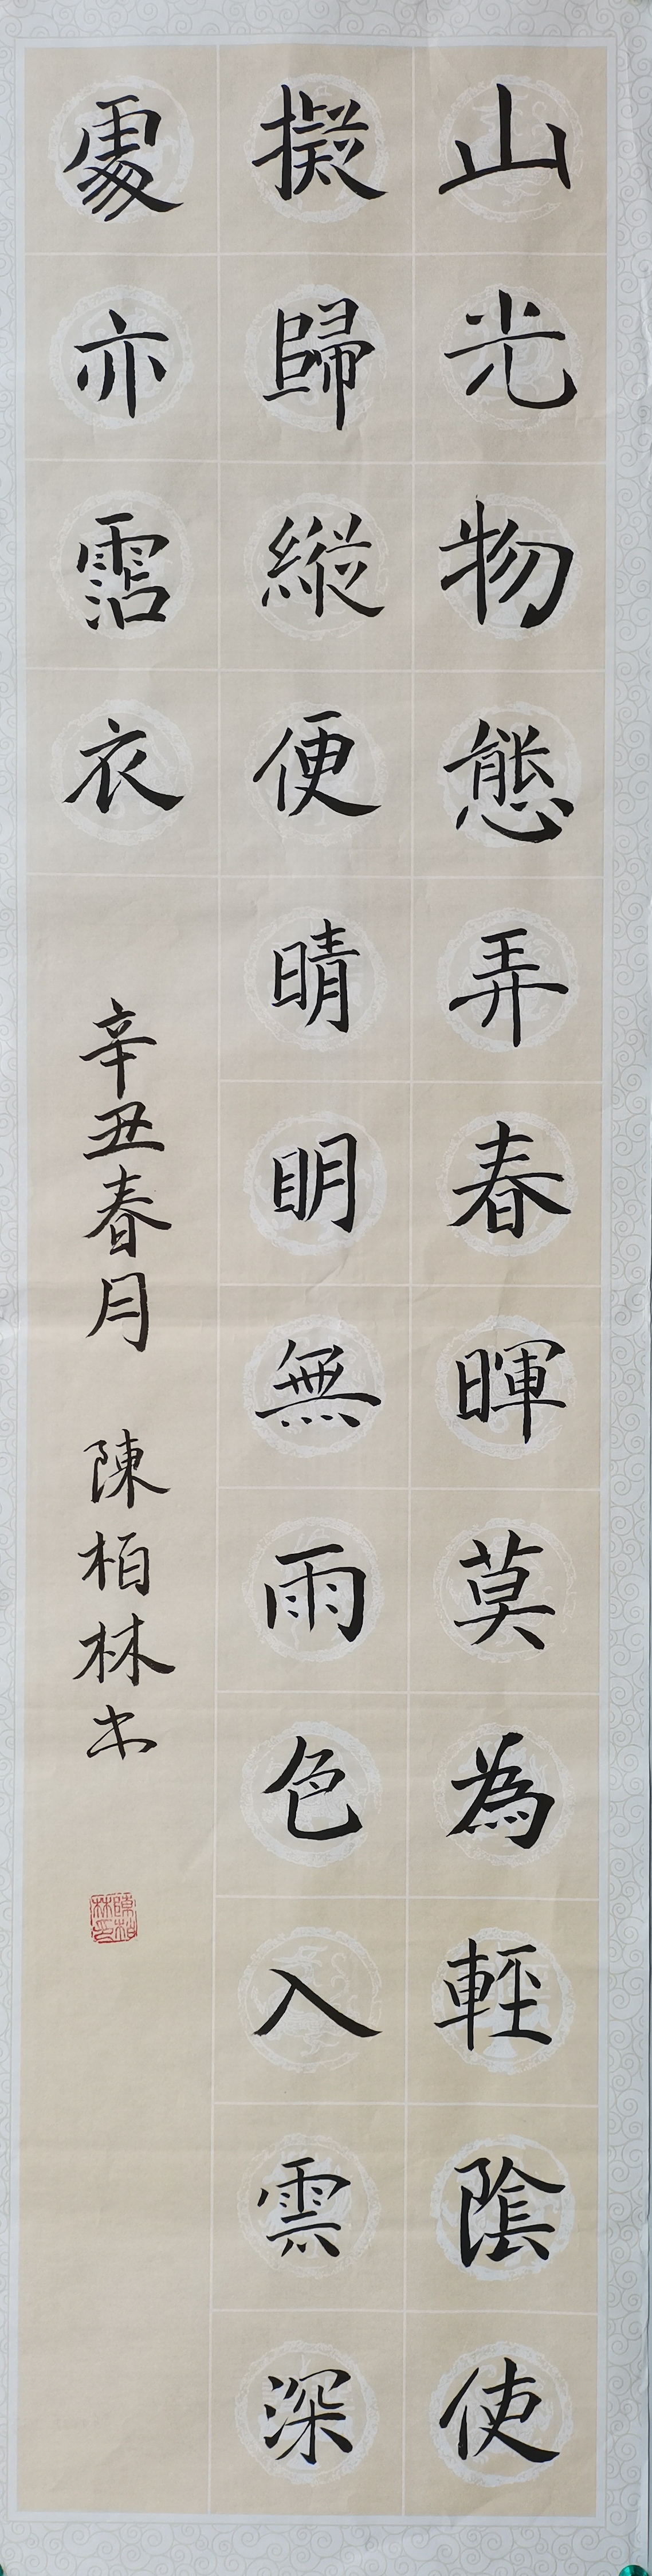 山光物態弄春暉莫為輕陰使
擬歸縱便晴明無雨色入雲深
處亦霑衣
辛丑春月 陳柏林书
陳柏林印